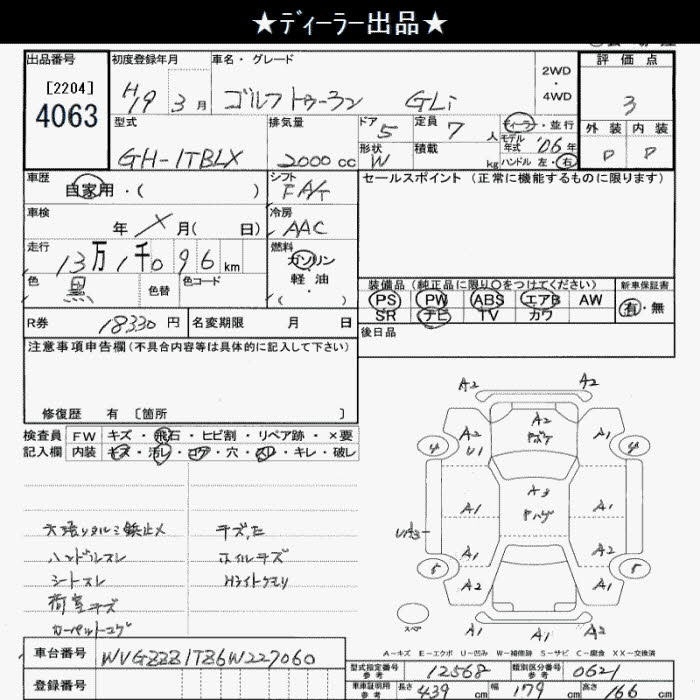 ★ディーラー出品★
出品番号
[2204]
4063
初度登録年月
H19 3月
車名・グレード
ゴルフトゥーラン GLi
2WD
・
4WD
評価点
3
外装 内装
D D
型式
GH-1TBLX
排気量
2000cc
ドア 5
形状 W
定員 7人
積載 kg
ディーラー・並行
モデル年式 '06年
ハンドル 左・右
車歴
自家用・( )
シフト
FA/T
セールスポイント (正常に機能するものに限ります)
車検
年 月( 日)
冷房
AAC
走行
13万1千096km
燃料
ガソリン
軽・油
・( )
色
黒
色替
色コード
装備品 (純正品に限り○をつけてください)
PS PW ABS エアB AW
SR ナビ TV カワ
新車保証書
有・無
R券 18330円
名変期限 月 日
後日品
注意事項申告欄(不具合内容等は具体的に記入して下さい)
修復歴 有 〔箇所 〕
検査員
記入欄
FW キズ・飛石・ヒビ割・リペア跡・×要
内装 キズ・汚レ・コゲ・穴・スレ・キレ・破レ
ハンドルスレ
シートスレ
荷室キズ
カーペットコゲ
ホイルキズ
Hライトクモリ
A2 A2
A2 A2 A1
4 U1 4
A1 A3 A1
A1 A1
5 A2 A2 5
A1 A1 A2
スペア
A-キズ E-エクボ U-凹み W-補修跡 S-サビ C-腐食 XX-交換済
車台番号 WVGZZZ1TZ6W227060
登録番号
型式指定番号 参考 12568
類別区分番号 参考 0621
車庫証明用 参考 長さ 439cm 幅 179cm 高さ 166cm